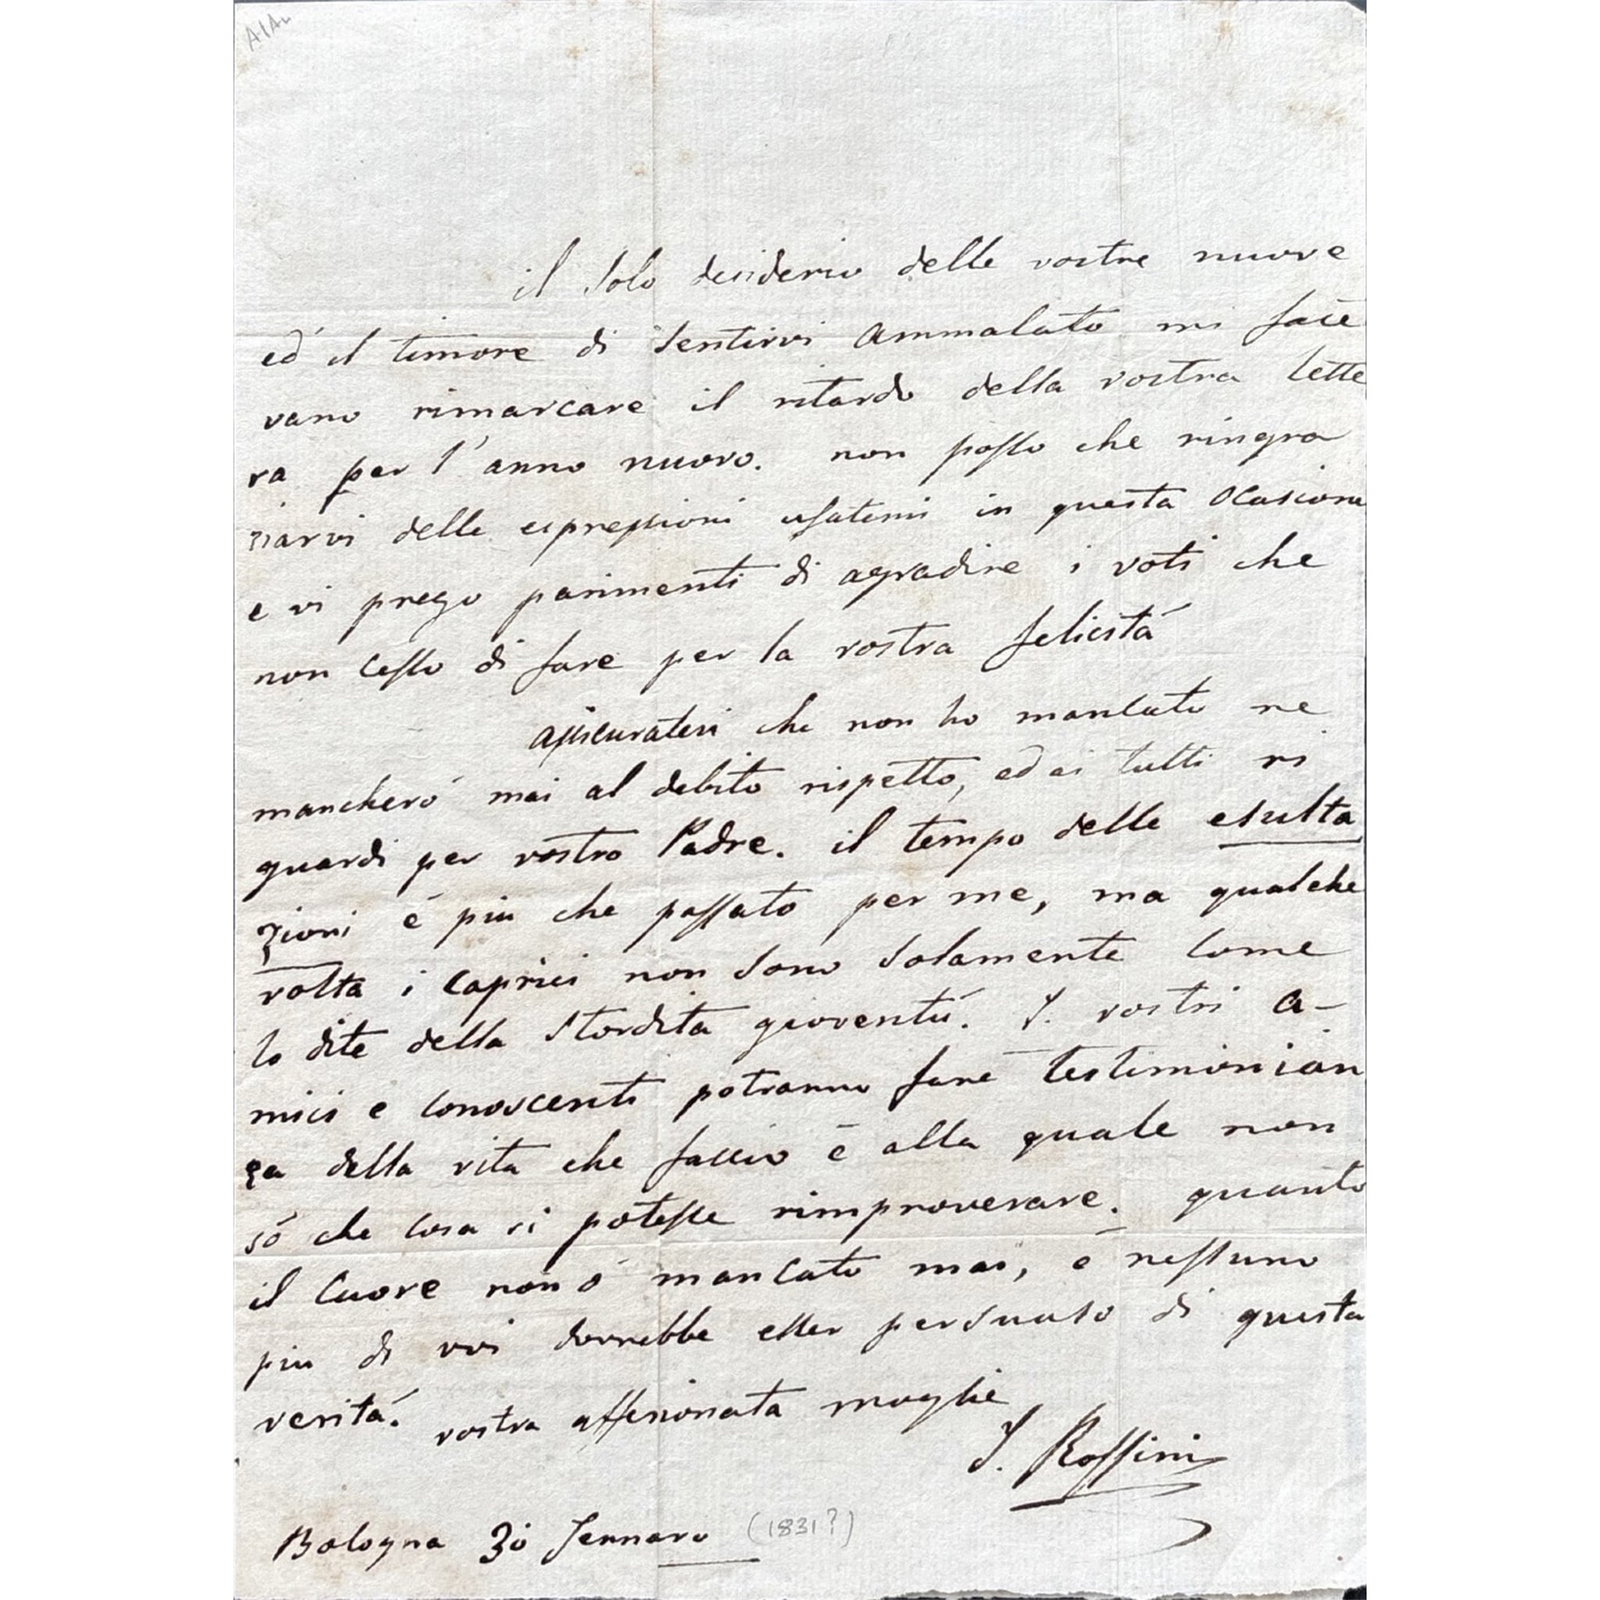 A1A
il solo desiderio delle vostre nuove
ed il timore di sentirvi ammalato mi face
vano rimarcare il ritardo della vostra lette
ra per l'anno nuovo. non posso che ringra
ziarvi delle espressioni usatemi in questa ocasione
e vi prego parimenti di agradire i voti che
non cesso di fare per la vostra felicitá
assicuratevi che non ho mancato ne
mancheró mai al debito rispetto, ed ai tutti ri
guardi per vostro Padre. il tempo delle esulta
zioni é piu che passato per me, ma qualche
volta i caprici non sono solamente come
lo dite della stordita gioventú. I. vostri a-
mici e conoscenti potranno fare testimonian
za della vita che faccio é alla quale non
só che cosa si potesse rimproverare. quanto
il Cuore non ó mancato mai, é nessuno
piu di voi dovrebbe esser persuaso di questa
veritá. vostra affezionata moglie
I. Rossini
Bologna 30 Jennaro (1831?)